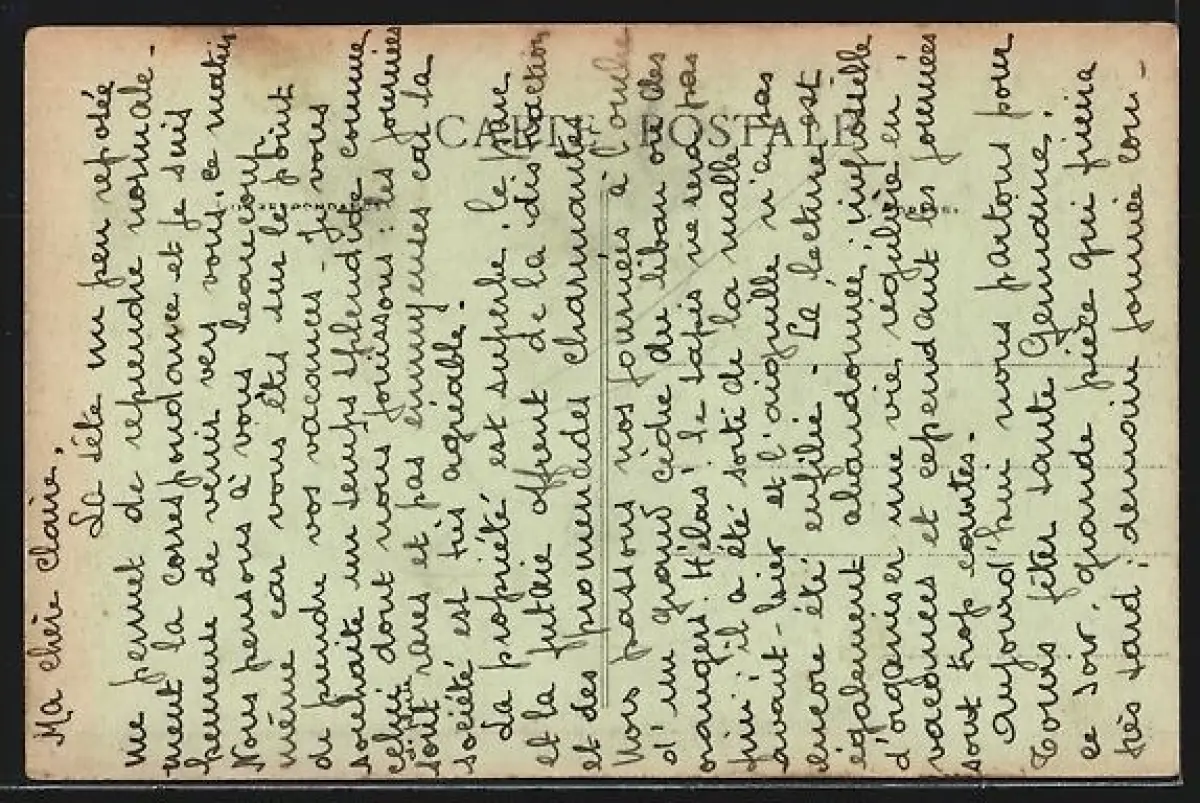 Ma chère Claire,
La tête un peu reposée
me permet de reprendre normale-
ment la correspondance et je suis
heureuse de venir vers vous, ce matin
Nous pensons à vous beaucoup
même car vous êtes sur le point
de prendre vos vacances - Je vous
souhaite un temps splendide comme
celui dont nous jouissons : les journées
sont rares et pas ennuyeuses car la
société est très agréable.
La propriété est superbe, le parc
et la futaie offrent de la distraction
et des promenades charmantes
Nous passons nos journées à l'ombre
d'un grand cèdre du liban ou des
orangers. Hélas ! le tapis ne sera pas
fini ; il a été sorti de la malle
avant-hier et l'aiguille n'a pas
encore été enfilée. La lecture est
également abandonnée, impossible
d'organiser une vie régulière en
vacances et cependant les journées
sont trop courtes.
Aujourd'hui nous partons pour
Tours fêter tante Germaine,
ce soir, grande pièce qui finira
très tard ; demain journée con-
CARTE POSTALE